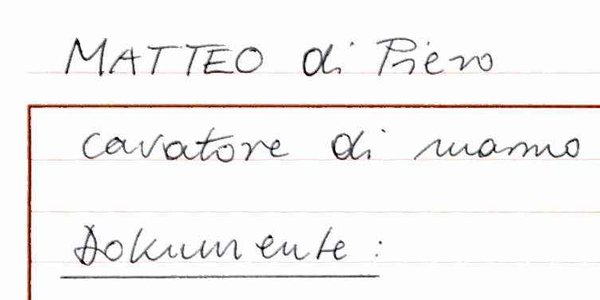 MATTEO di Piero
cavatore di marmo
Dokumente: